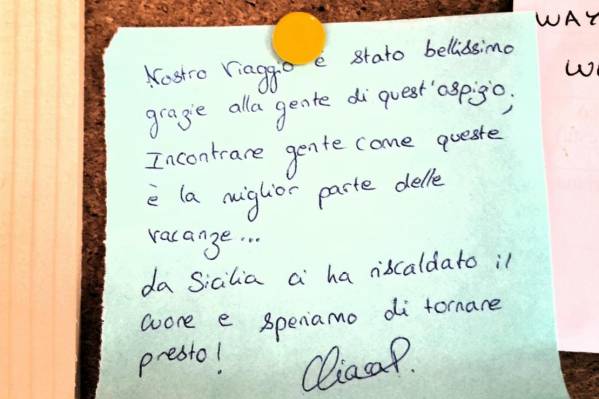 Nostro Viaggio è stato bellissimo
grazie alla gente di quest'ospizio.
Incontrare gente come queste,
è la miglior parte delle
vacanze...
La Sicilia ci ha riscaldato il
cuore e speriamo di tornare
presto!
Chiara P.
WAY